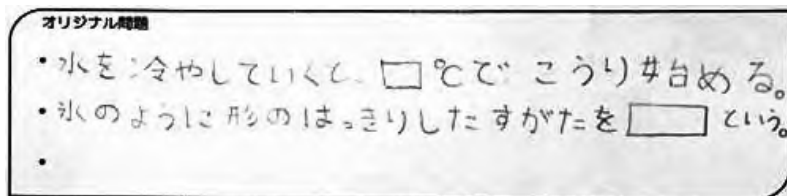 オリジナル問題
・水を冷やしていくと、□℃でこうり始める。
・氷のように形のはっきりしたすがたを□という。
・